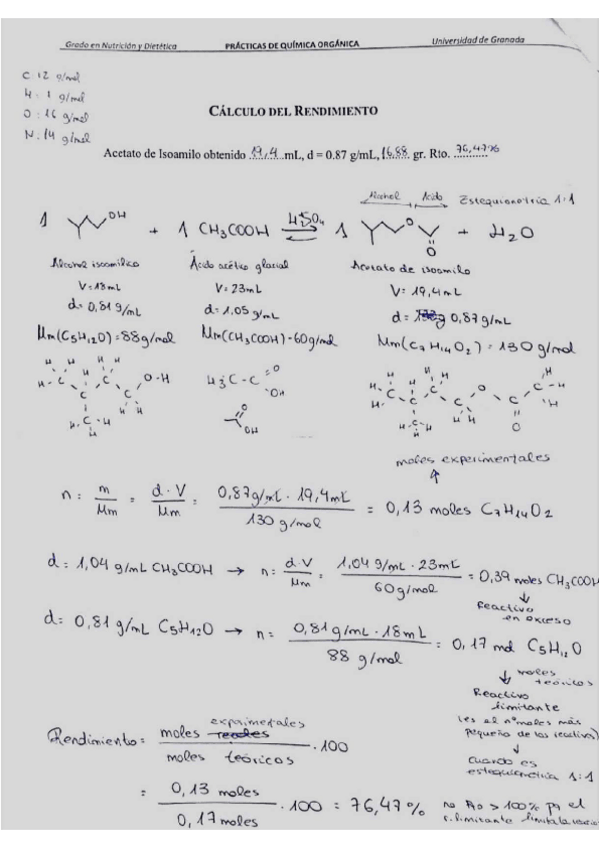 Grado en Nutrición y Dietética PRÁCTICAS DE QUÍMICA ORGÁNICA Universidad de Granada
C: 12 g/mol
H: 1 g/mol
O: 16 g/mol
N: 14 g/mol
CÁLCULO DEL RENDIMIENTO
Acetato de Isoamilo obtenido 19,4 mL, d = 0.87 g/mL, 16,88 gr. Rto. 76,47%
Alcohol Ácido Estequiometría 1:1
1 OH + 1 CH3COOH ⇌ 1 O O + H2O
Alcohol isoamílico Ácido acético glacial Acetato de isoamilo
V = 18 mL V = 23 mL V: 19,4 mL
d = 0,81 g/mL d: 1,05 g/mL d = 0,87 g/mL
Mm(C5H12O) = 88 g/mol Mm(CH3COOH) = 60 g/mol Mm(C7H14O2) = 130 g/mol
moles experimentales
n = m/Mm = d·V/Mm = 0,87 g/mL · 19,4 mL / 130 g/mol = 0,13 moles C7H14O2
d = 1,04 g/mL CH3COOH → n = d·V/Mm = 1,04 g/mL · 23 mL / 60 g/mol = 0,39 moles CH3COOH
↓
Reactivo
en exceso
d = 0,81 g/mL C5H12O → n = 0,81 g/mL · 18 mL / 88 g/mol = 0,17 mol C5H12O
↓ moles teóricos
Reactivo
limitante
(es el nº moles más
pequeño de los reactivos)
↓
cuando es
estequiometría 1:1
Rendimiento = moles experimentales / moles teóricos · 100
= 0,13 moles / 0,17 moles · 100 = 76,47 %
no > 100% pq el
r. limitante limita la